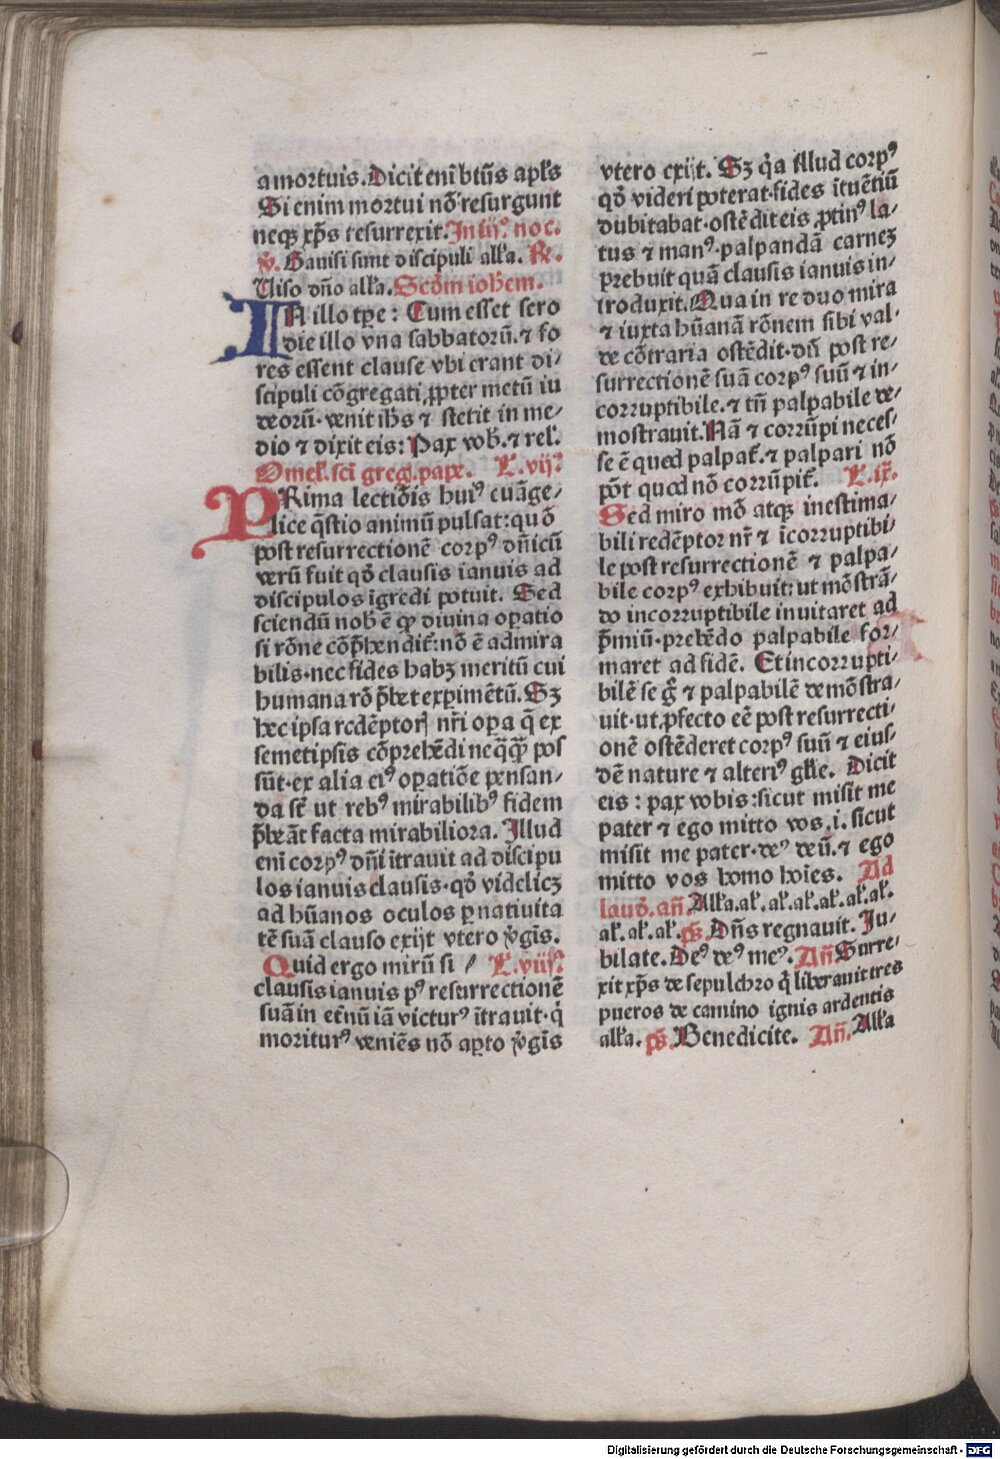 a mortuis. Dicit eni̅ btu̅s apl's
Si enim mortui no̅ resurgunt
neqꝫ xp̅s resurrexit. In iijº. noc.
℣. Gauisi sunt discipuli all'a. R̅.
Uiso dn̅o all'a. Scd̅m ioh̅em.
IN illo tp̅e : Cum esset sero
die illo vna sabbatoru̅. ⁊ fo
res essent clause vbi erant di⸗
scipuli co̅gregati ꝓpter metu̅ iu
deoru̅· venit ih̅s ⁊ stetit in me⸗
dio ⁊ dixit eis: Pax vob̅. ⁊ rel'.
Omel'. sci̅ greg̅. pape. L. vijª.
PRima lectio̅is huiꝰ eua̅ge⸗
lice q̅stio animu̅ pulsat: quo̅
post resurrectione̅ corpꝰ dn̅icu̅
veru̅ fuit qd̕ clausis ianuis ad
discipulos i̅gredi potuit. Sed
sciendu̅ nob̅ e̅ ꝙ diuina oꝑatio
si ro̅ne co̅p̅hendit̕: no̅ e̅ admira
bilis· nec fides habꝫ meritu̅ cui
humana ro̅ p̅bet exꝑime̅tu̅. Sꝫ
hec ipsa rede̅ptorꝭ nr̅i oꝑa q̅ ex
semetipsis co̅prehe̅di neq̅q̅ꝫ pos
su̅t· ex alia eiꝰ oꝑatio̅e pensan⸗
da su̅t ut rebꝰ mirabilibꝰ fidem
p̅bea̅t facta mirabiliora. Illud
eni̅ corpꝰ dn̅i i̅trauit ad discipu
los ianuis clausis· qd̕ videlicꝫ
ad hu̅anos oculos ꝑ natiuita
te̅ sua̅ clauso exijt vtero v̕gi̅s.
Quid ergo miru̅ si / L. viijª.
clausis ianuis pꝰ resurrectione̅
sua̅ in et̕nu̅ ia̅ victurꝰ i̅trauit· q̕
moriturꝰ venie̅s no̅ aꝑto v̕gi̅s
vtero exijt. Sꝫ q̕a illud corpꝰ
qd̕ videri poterat· fides i̅tue̅tiu̅
dubitabat· oste̅dit eis ꝓtinꝰ la⸗
tus ⁊ manꝰ· palpanda̅ carneꝫ
prebuit qua̅ clausis ianuis in⸗
troduxit. Qua in re duo mira
⁊ iuxta hu̅ana̅ ro̅nem sibi val⸗
de co̅traria oste̅dit· du̅ post re⸗
surrectione̅ sua̅ corpꝰ suu̅ ⁊ in⸗
corruptibile. ⁊ tn̅ palpabile de⸗
mostrauit. Na̅ ⁊ corru̅pi neces⸗
se e̅ quod palpat̕. ⁊ palpari no̅
po̅t quod no̅ corru̅pit̕. L. ix̕.
Sed miro mo̅ atqꝫ inestima⸗
bili rede̅ptor nr̅ ⁊ i̅corruptibi⸗
le post resurrectione̅ ⁊ palpa⸗
bile corpꝰ exhibuit: ut mo̅stra̅⸗
do incorruptibile inuitaret ad
p̅miu̅· prebe̅do palpabile for⸗
maret ad fide̅. Et incorrupti⸗
bile̅ se g̕ ⁊ palpabile̅ demo̅stra⸗
uit· ut ꝓfecto ee̅ post resurrecti⸗
one̅ oste̅deret corpꝰ suu̅ ⁊ eius⸗
de̅ nature ⁊ alteriꝰ gl'ie. Dicit
eis : pax vobis: sicut misit me
pater ⁊ ego mitto vos. i. sicut
misit me pater· deꝰ deu̅. ⁊ ego
mitto vos homo ho̅ies. Ad
laud̕. an̅. All'a. al'. al'. al'. al'. al'. al'.
al'. al'. al'. ps̅. Dn̅s regnauit. Iu⸗
bilate. Deꝰ deꝰ meꝰ. An̅ Surre⸗
xit xp̅s de sepulchro q̕ liberauit tres
pueros de camino ignis ardentis
all'a. ps̅. Benedicite. An̅. All'a
Digitalisierung gefördert durch die Deutsche Forschungsgemeinschaft - DFG